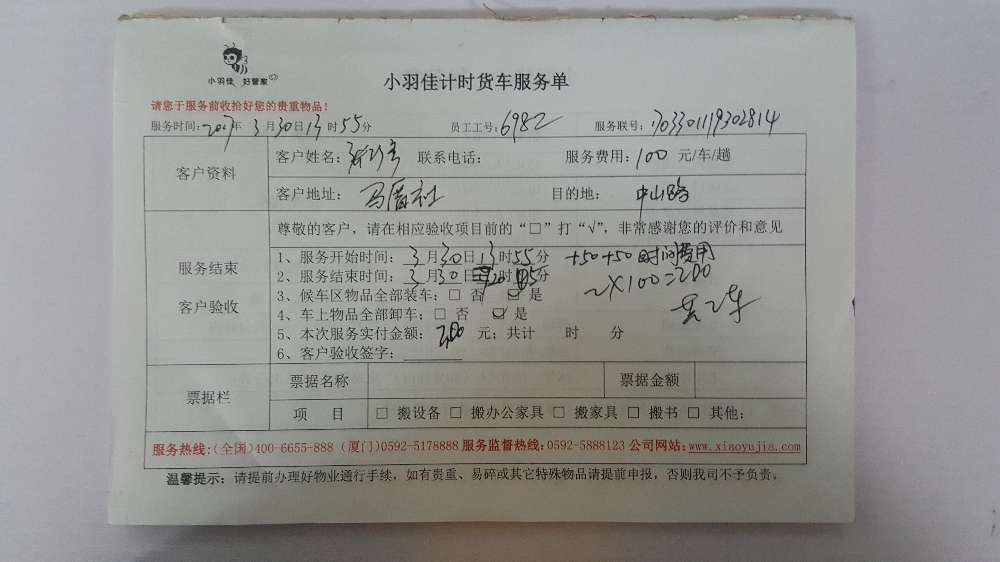 小羽佳 好管家
小羽佳计时货车服务单
请您于服务前收拾好您的贵重物品!
服务时间:2017年3月30日13时55分 员工工号:6982 服务联号:170330119302814
客户资料
客户姓名: 联系电话: 服务费用:100元/车/趟
客户地址:马厝社 目的地:中山路
服务结束
客户验收
尊敬的客户,请在相应验收项目前的“□”打“√”,非常感谢您的评价和意见
1、服务开始时间:3月30日13时55分 +50+50时间费用
2、服务结束时间:3月30日 时 分 2×100=200
3、候车区物品全部装车:□ 否 ☑ 是 共2车
4、车上物品全部卸车:□ 否 ☑ 是
5、本次服务实付金额: 元;共计 时 分
6、客户验收签字:
票据栏
票据名称 票据金额
项 目 □ 搬设备 □ 搬办公家具 □ 搬家具 □ 搬书 □ 其他:
服务热线:(全国)400-6655-888 (厦门)0592-5178888 服务监督热线:0592-5888123 公司网站:www.xiaoyujia.com
温馨提示:请提前办理好物业通行手续,如有贵重、易碎或其它特殊物品请提前申报,否则我司不予负责。